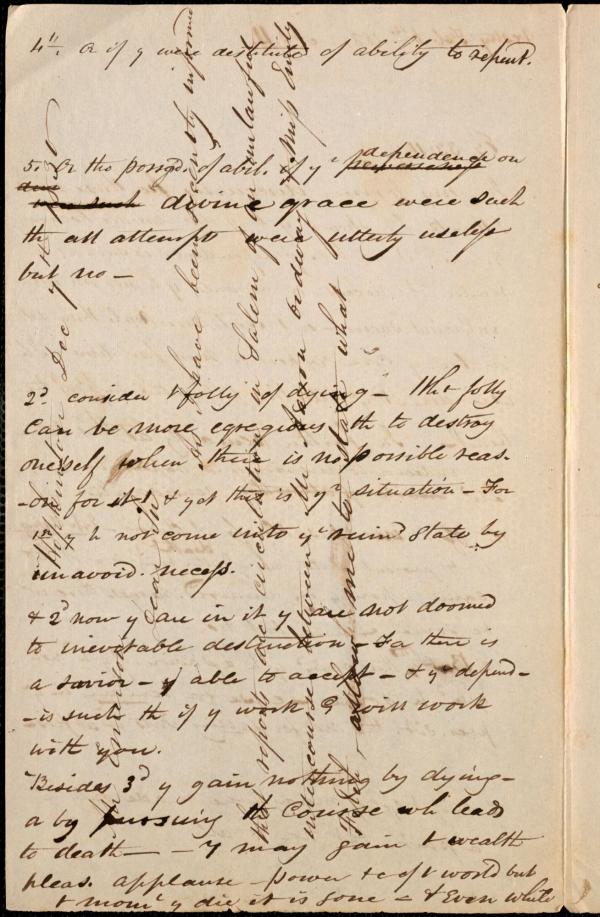 4th. Or if y were destitute of ability to repent.
5. Or tho possgd. of abil. if yr dependence on
divine grace were such
th all attempts were utterly useless
but no —
2d consider t folly of dying — Wht folly
can be more egregious th to destroy
oneself when there is no possible reas-
-on for it! & yet this is yr situation — For
1st y h not come into yr ruind state by
unavoid. necess.
& 2d now y are in it y are not doomed
to inevitable destruction — Fa there is
a savior — y able to accept — & yr depend-
-is such th if y work G will work
with you.
Besides 3d y gain nothing by dying —
a by pursuing th course wh leads
to death — — y may gain t wealth
pleas. applause — power &c of t world but
t momt y die it is gone — & Even while
Dec 7th
have been recently informed
that reports are circulating in Salem of an unlawful
intercourse between Mr Nixon ordway & Miss Emily
allow me to state what